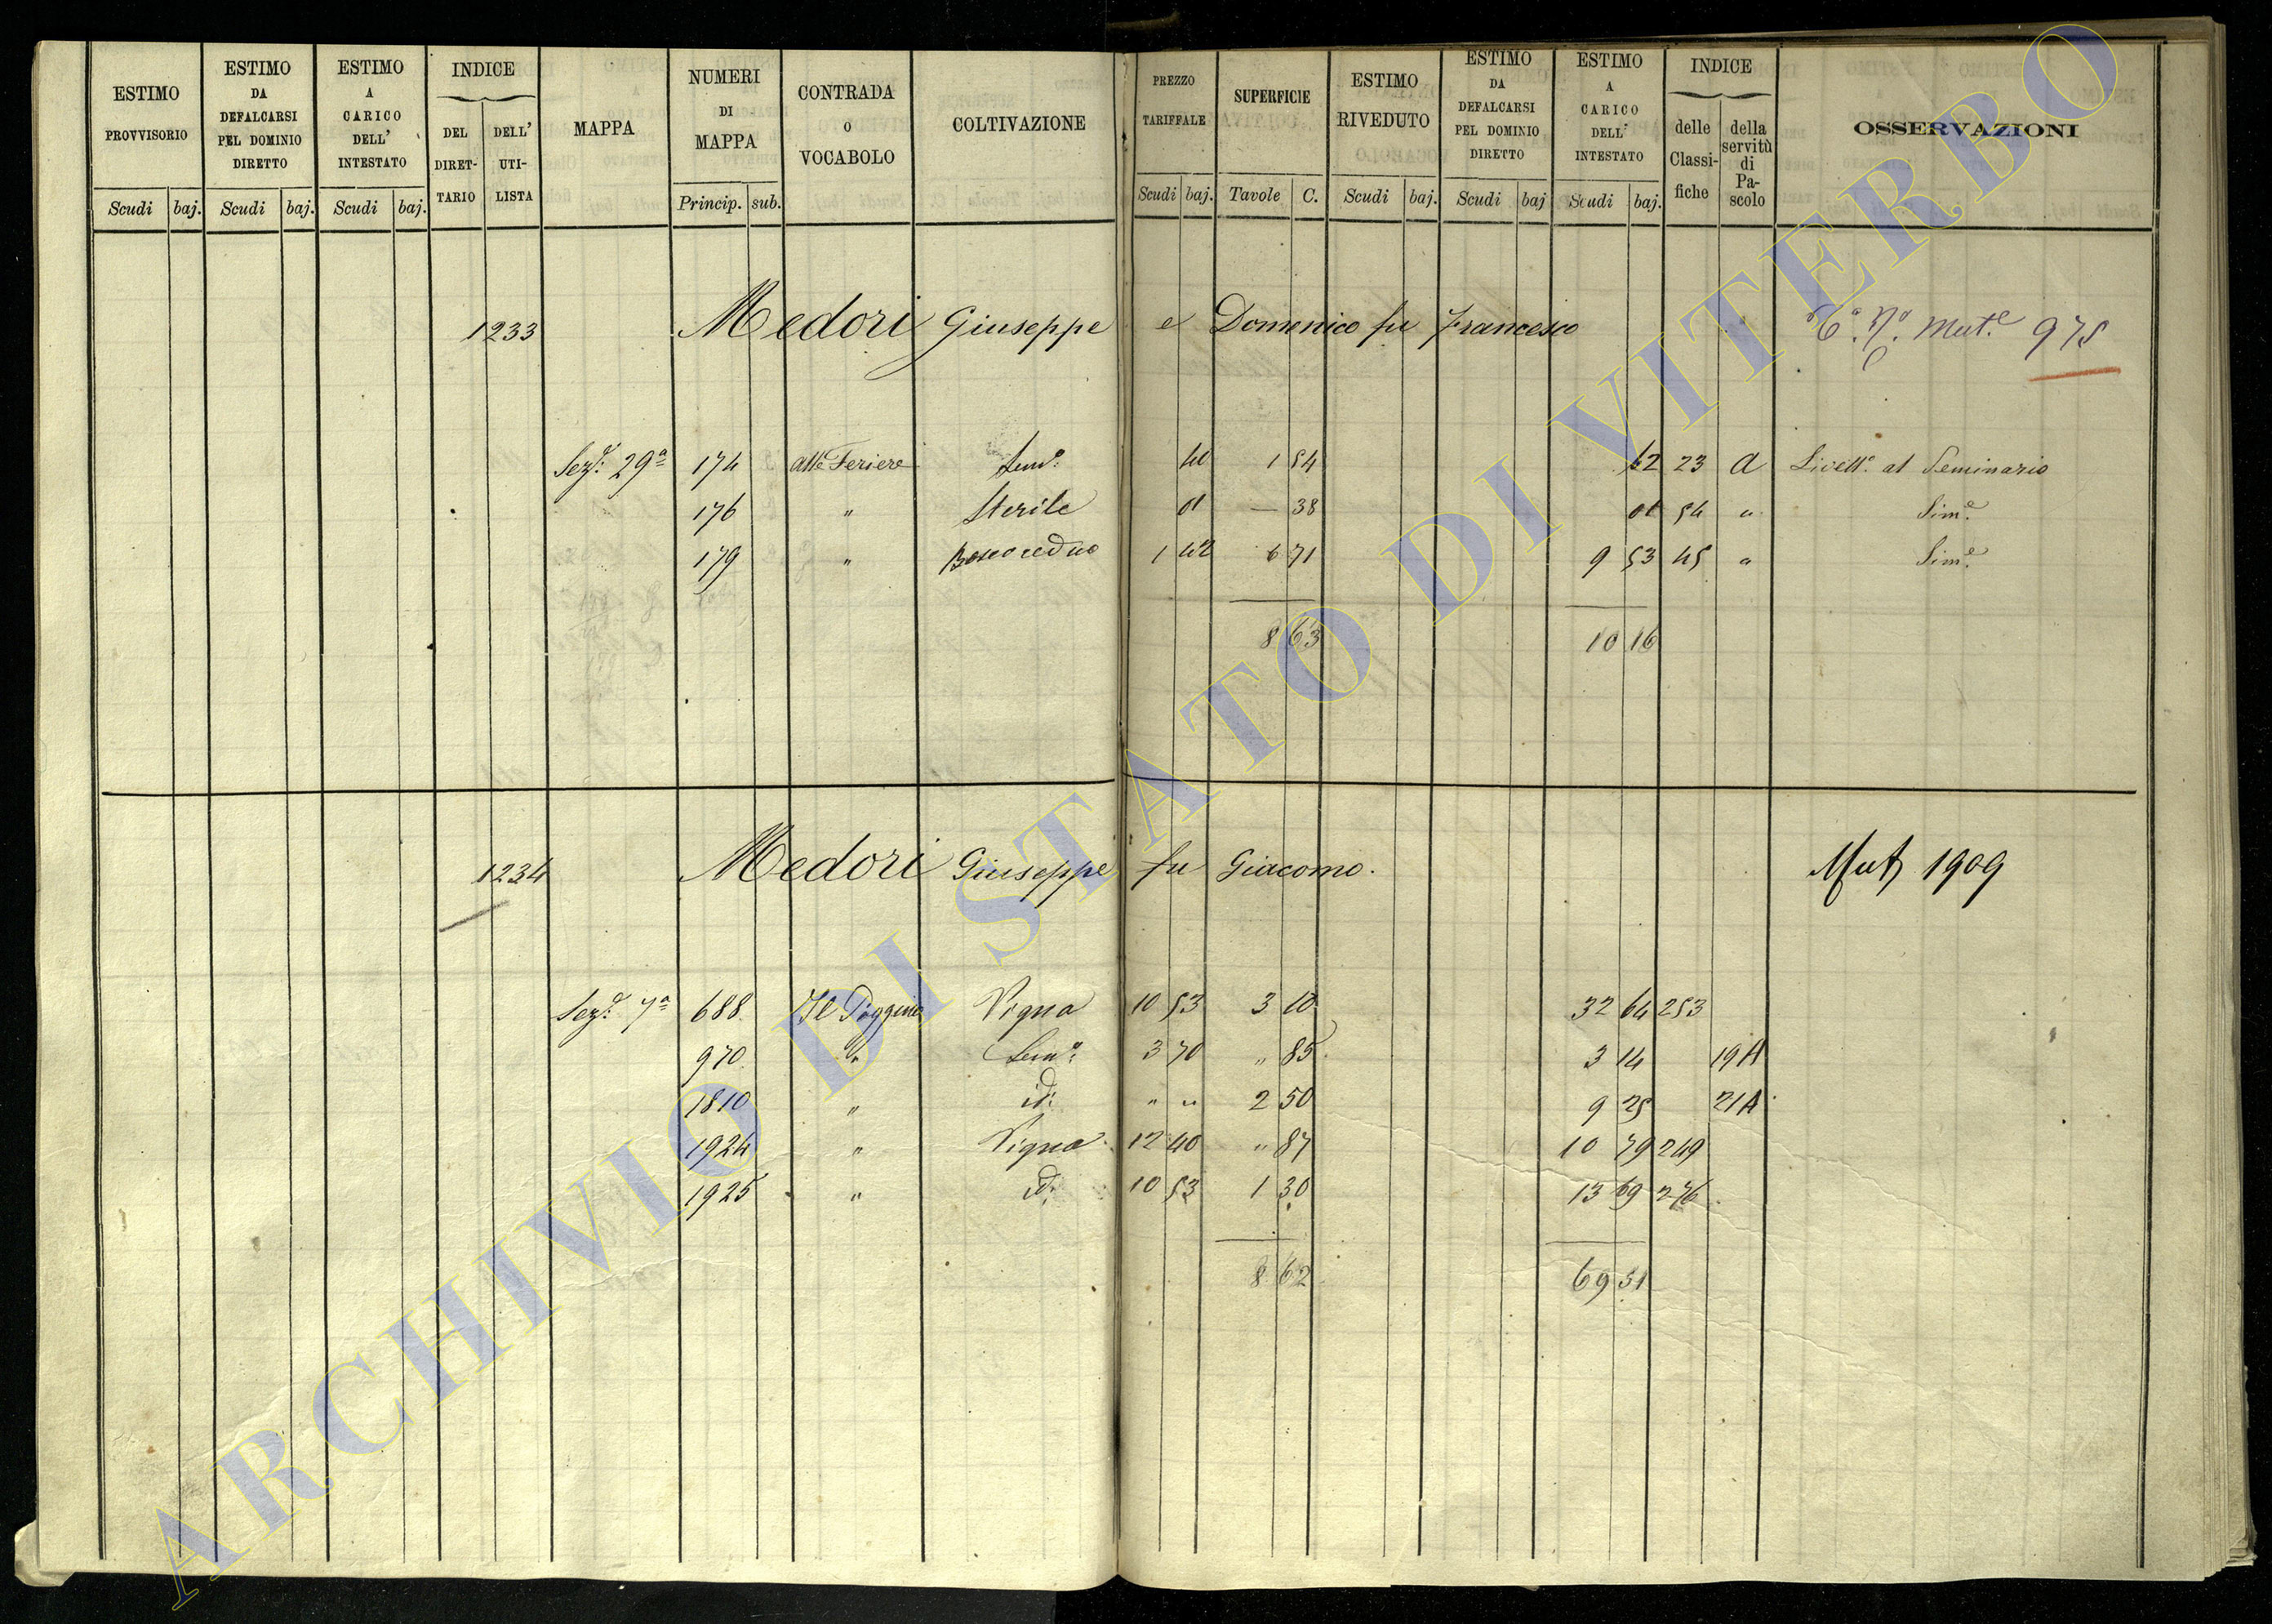 ESTIMO PROVVISORIO | ESTIMO DA DEFALCARSI PEL DOMINIO DIRETTO | ESTIMO A CARICO DELL' INTESTATO | INDICE DEL DIRET-TARIO | DELL' UTI-LISTA | MAPPA | NUMERI DI MAPPA | CONTRADA O VOCABOLO | COLTIVAZIONE | PREZZO TARIFFALE | SUPERFICIE | ESTIMO RIVEDUTO | ESTIMO DA DEFALCARSI PEL DOMINIO DIRETTO | ESTIMO A CARICO DELL' INTESTATO | INDICE delle Classi-fiche | della servitù di Pa-scolo | OSSERVAZIONI
Scudi baj. Scudi baj. Scudi baj. Princip. sub. Scudi baj. Tavole C. Scudi baj. Scudi baj Scudi baj.
1233 Medori Giuseppe e Domenico fu Francesco Mut.e 975
Sez. 29a 174 alle Feriere Sem.o 40 1 54 62 23 A Livell.o al Seminario
176 " Sterile 01 — 38 01 54 " Sim.e
179 " Bosco ceduo 1 42 6 71 9 53 45 " Sim.e
8 63 10 16
1234 Medori Giuseppe fu Giacomo. Mut 1909
Sez. 7a 688 Il Poggino Vigna 10 53 3 10 32 64 253
970 " Sem.o 3 70 " 85 3 14 19 A
1810 " id: " " 2 50 9 25 21 A
1924 " Vigna 12 40 " 87 10 79 249
1925 " id: 10 53 1 30 13 69 276
8 62 69 51
ARCHIVIO DI STATO DI VITERBO